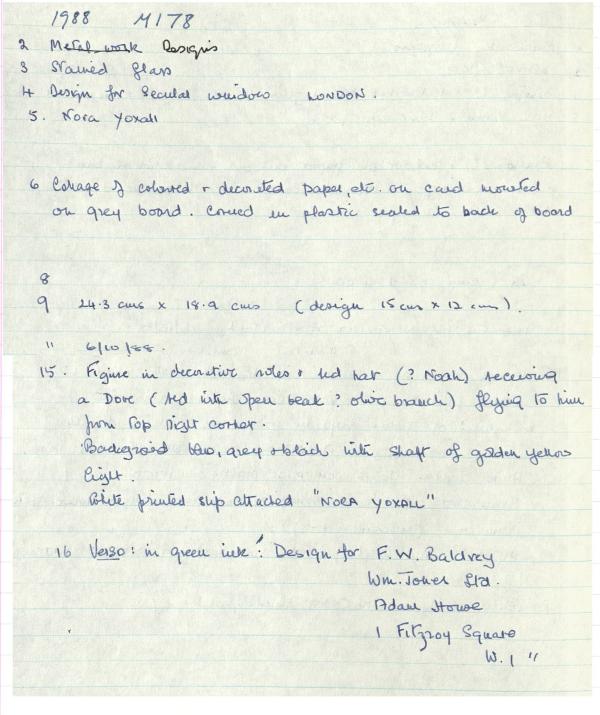 1988 M178
2 Metal work Designs
3 Stained Glass
4 Design for Secular window LONDON.
5. Nora Yoxall
6 Collage of coloured + decorated paper, etc. on card mounted
on grey board. Covered in plastic sealed to back of board
8
9 24.3 cms x 18.9 cms (design 15 cms x 12 cms).
" 6/10/88.
15. Figure in decorative robes + red hat (? Noah) receiving
a Dove (red with open beak ? olive branch) flying to him
from top right corner.
Background blue, grey + black with shaft of golden yellow
light.
White printed slip attached "NORA YOXALL"
16 Verso: in green ink: Design for F.W. Baldrey
Wm. Jones Ltd.
Adam House
1 Fitzroy Square
W.1 "